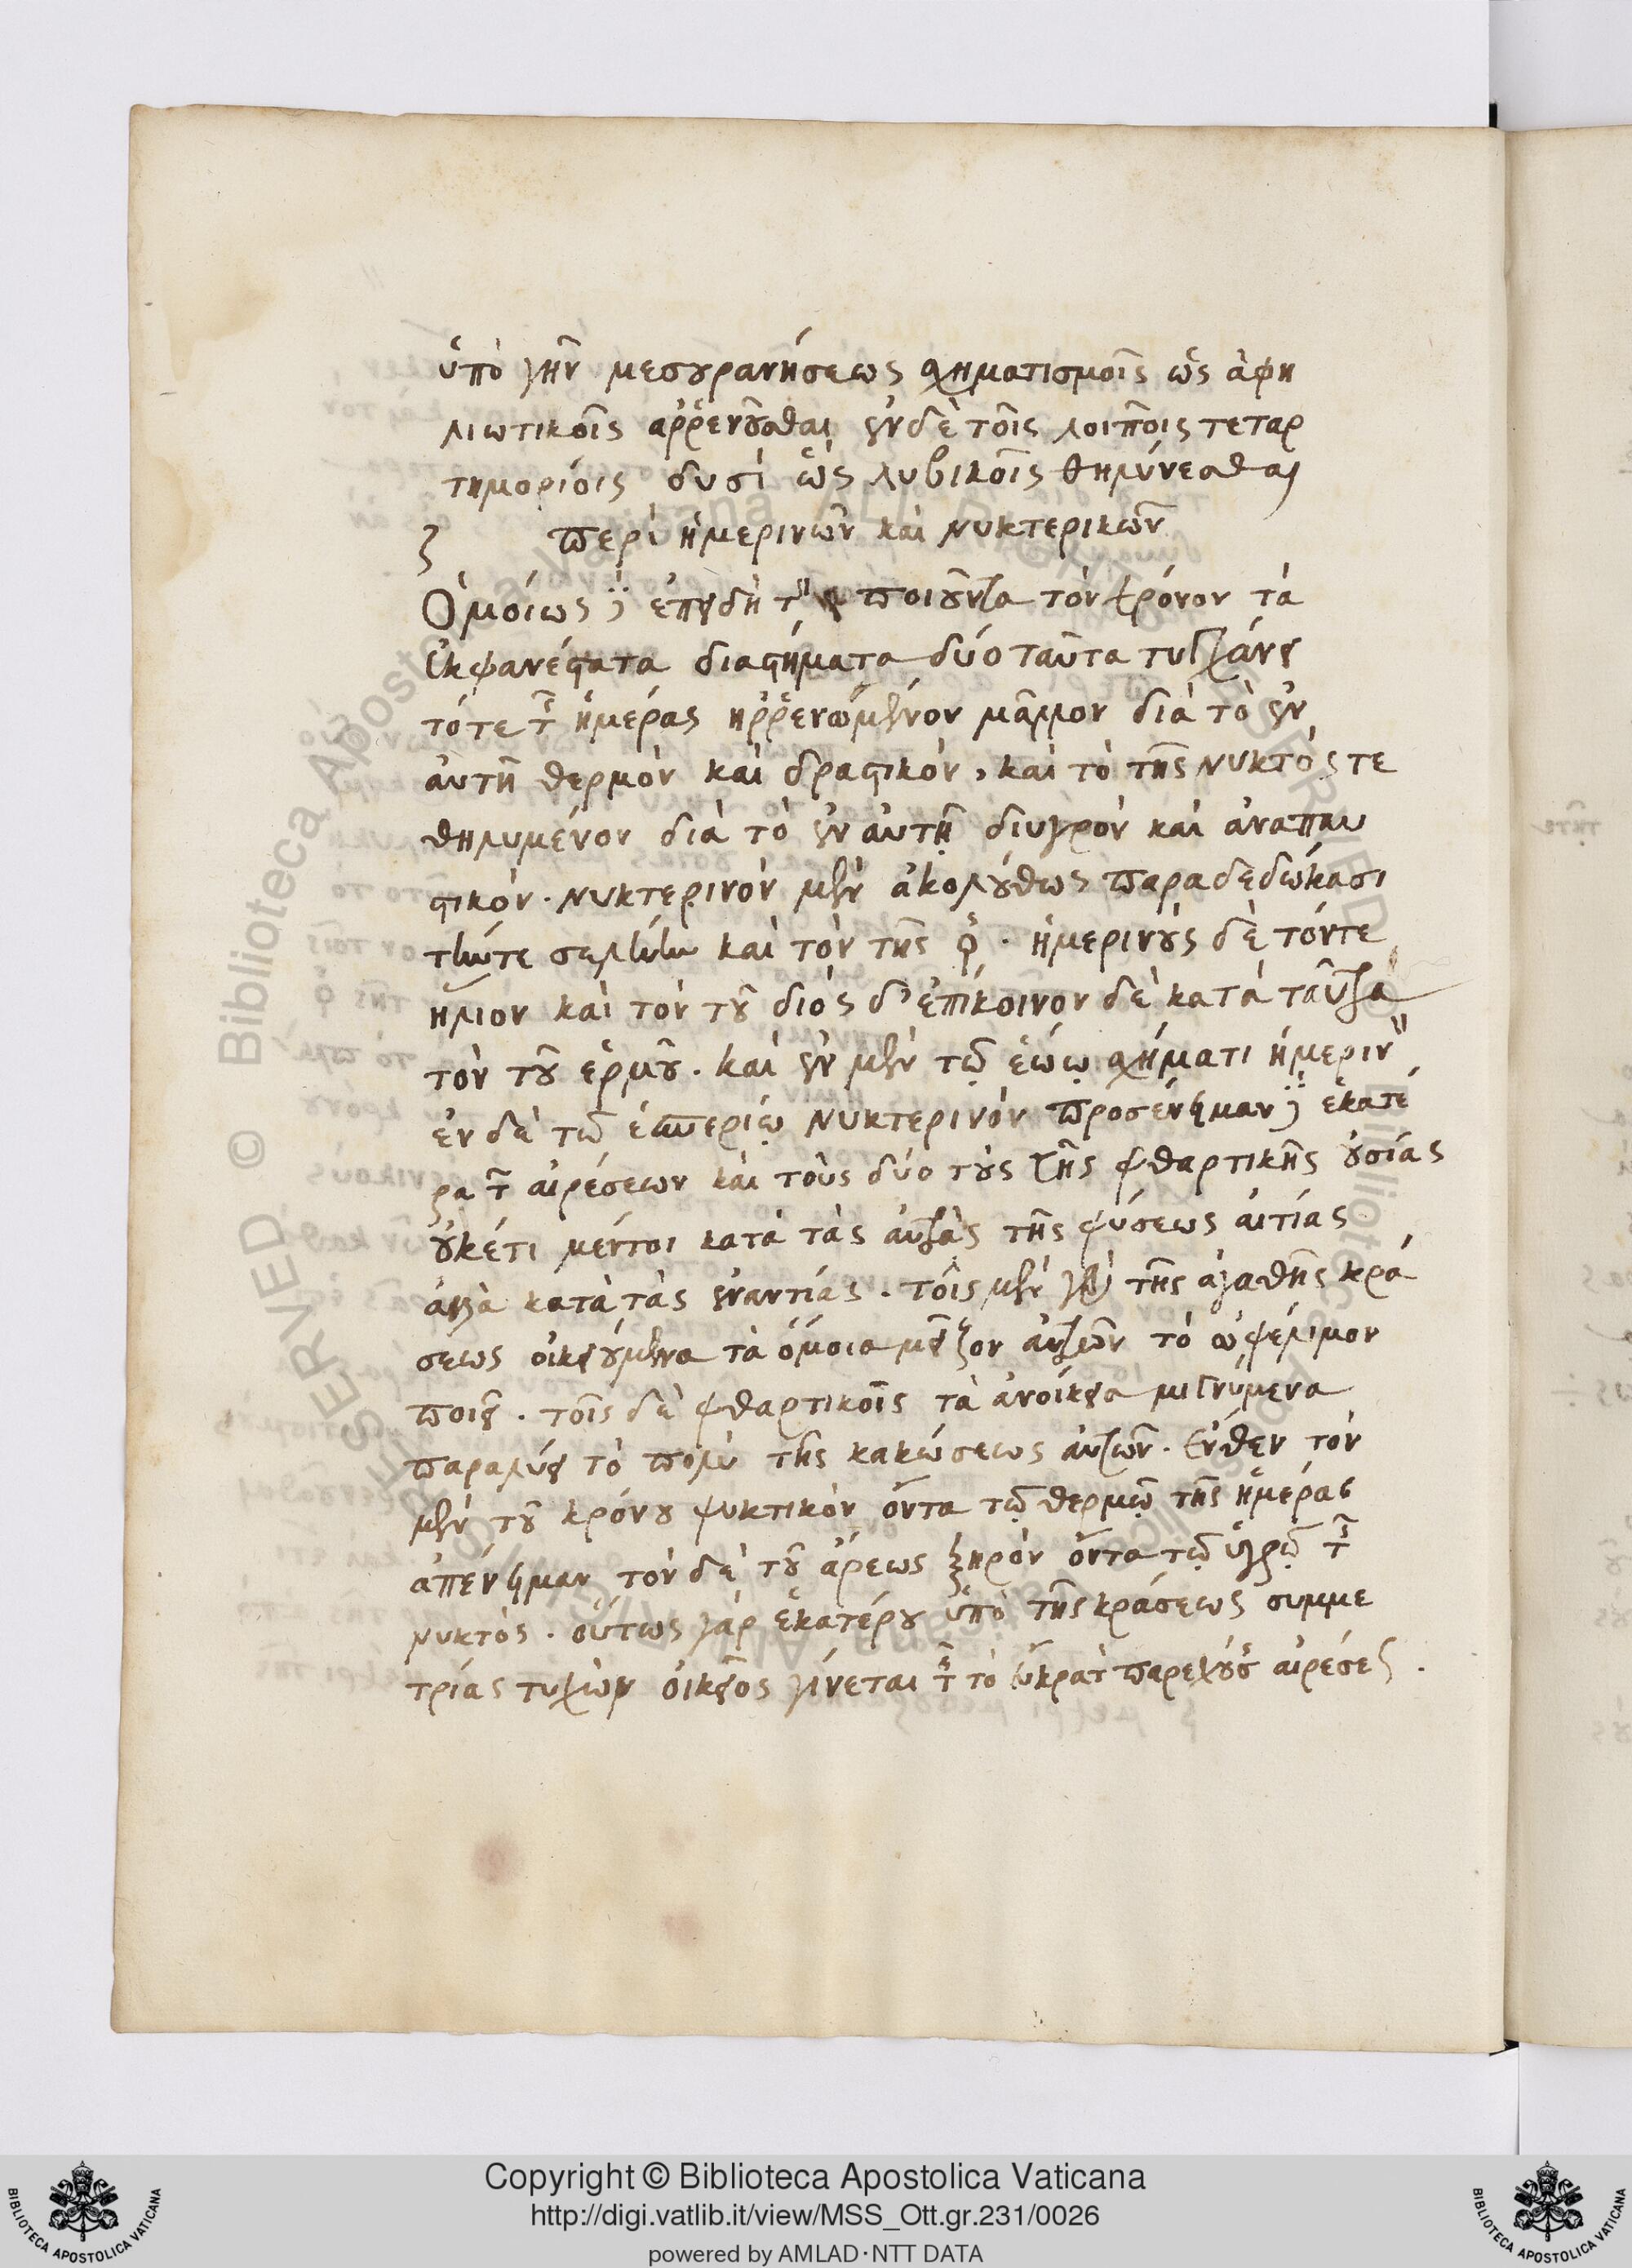 ὑπὸ γῆν μεσουρανήσεως σχηματισμοῖς ὡς ἀφη
λιωτικοῖς ἀρρενοῦσθαι ἐν δὲ τοῖς λοιποῖς τεταρ
τημορίοις δυσὶ ὡς λυβικοῖς θηλύνεσθαι
ζ περὶ ἡμερινῶν καὶ νυκτερικῶν
Ὁμοίως δὲ ἐπειδὴ τῶν ποιούντα τὸν χρόνον τὰ
ἐκφανέστατα διαστήματα δύο ταῦτα τυγχάνει
τότε τῆς ἡμέρας ἠρρενώμενον μᾶλλον διὰ τὸ ἐν
αὐτῆ θερμὸν καὶ δραστικόν, καὶ τὸ τῆς νυκτός τε
θηλυμένον διὰ τὸ ἐν αὐτῇ δίυγρον καὶ ἀναπαυ
στικόν. νυκτερινὸν μὲν ἀκολούθως παραδεδώκασι
τήν τε σελήνην καὶ τὸν τῆς ♀. ἡμερινοὺς δὲ τόν τε
ἥλιον καὶ τὸν τοῦ διός δ' ἐπίκοινον δὲ κατὰ ταῦτα
τὸν τοῦ ἑρμοῦ. καὶ ἐν μὲν τῷ ἑώῳ σχήματι ἡμεριν
ἐν δὲ τῶ ἑσπερίῳ νυκτερινὸν προσένειμαν δὲ ἑκατέ
ρα τῶν αἱρέσεων καὶ τοὺς δύο τοὺς τῆς φθαρτικῆς οὐσίας
οὐκέτι μέντοι κατὰ τὰς αὐτὰς τῆς φύσεως αἰτίας
ἀλλὰ κατὰ τὰς ἐναντίας. τοῖς μὲν γὰρ τῆς ἀγαθῆς κρά
σεως οἰκειούμενα τὰ ὅμοια μεῖζον αὐτῶν τὸ ὠφέλιμον
ποιεῖ. τοῖς δὲ φθαρτικοῖς τὰ ἀνοίκεια μιγνύμενα
παραλύει τὸ πολὺ τῆς κακώσεως αὐτῶν. ἔνθεν τὸν
μὲν τοῦ κρόνου ψυκτικὸν ὄντα τῷ θερμῷ τῆς ἡμέρας
ἀπένειμαν τὸν δὲ τοῦ ἄρεως ξηρὸν ὄντα τῷ ὑγρῷ τῆς
νυκτὸς. οὕτως γὰρ ἑκατέρου ὑπὸ τῆς κράσεως συμμε
τρίας τυχὼν οἰκεῖος γίνεται τῆς τὸ εὔκρατ παρεχούσ αἱρέσε .